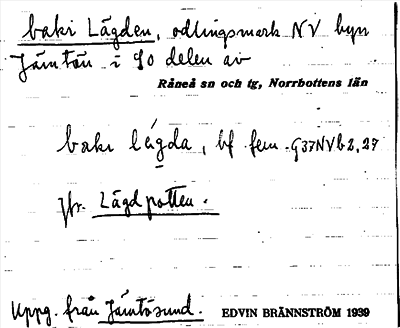 baki Lägden, odlingsmark NV byn
Jämtön i SO delen av
Råneå sn och tg, Norrbottens län
baki lägda, bf fem. G37NVb2,27
Jfr. Lägdpotten.
Uppg. från Jämtösund. EDVIN BRÄNNSTRÖM 1939